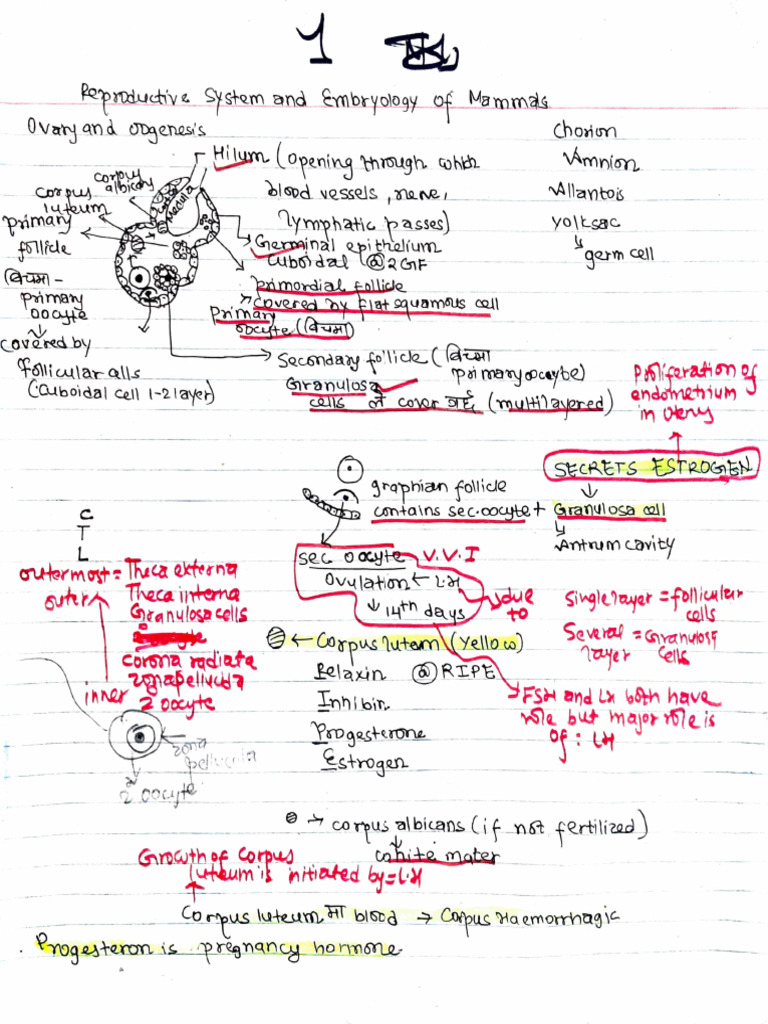 1
Reproductive System and Embryology of Mammals
Ovary and oogenesis
Chorion
Amnion
Allantois
yolksac
germ cell
Hilum (opening through which
blood vessels, nerve,
lymphatic passes)
Germinal epithelium
cuboidal @ 2GF
primordial follicle
covered by flat squamous cell
primary
oocyte (बिचमा)
medulla
corpus
albicans
corpus
luteum
primary
follicle
बिचमा -
primary
oocyte
covered by
follicular cells
(cuboidal cell 1-2 layer)
Secondary follicle (बिचमा
primary oocyte)
Granulosa
cells ले cover गर्छ (multilayered)
Proliferation of
endometrium
in utery
SECRETS ESTROGEN
graphian follicle
contains sec.oocyte + Granulosa cell
Antrum cavity
sec oocyte V.V.I
Ovulation ← LH
14th days
due
to
Single layer = follicular
cells
Several = Granulosa
layer cells
C
T
L
outermost = Theca externa
outer Theca interna
Granulosa cells
corona radiata
zona pellucida
inner 2 oocyte
zona
pellucida
2° oocyte
← Corpus luteum (yellow)
Relaxin @ RIPE
Inhibin
Progesterone
Estrogen
FSH and LH both have
role but major role is
of : LH
→ corpus albicans (if not fertilized)
white mater
Growth of Corpus
luteum is initiated by = LH
Corpus luteum मा blood → Corpus Haemorrhagic
Progesteron is pregnancy hormone